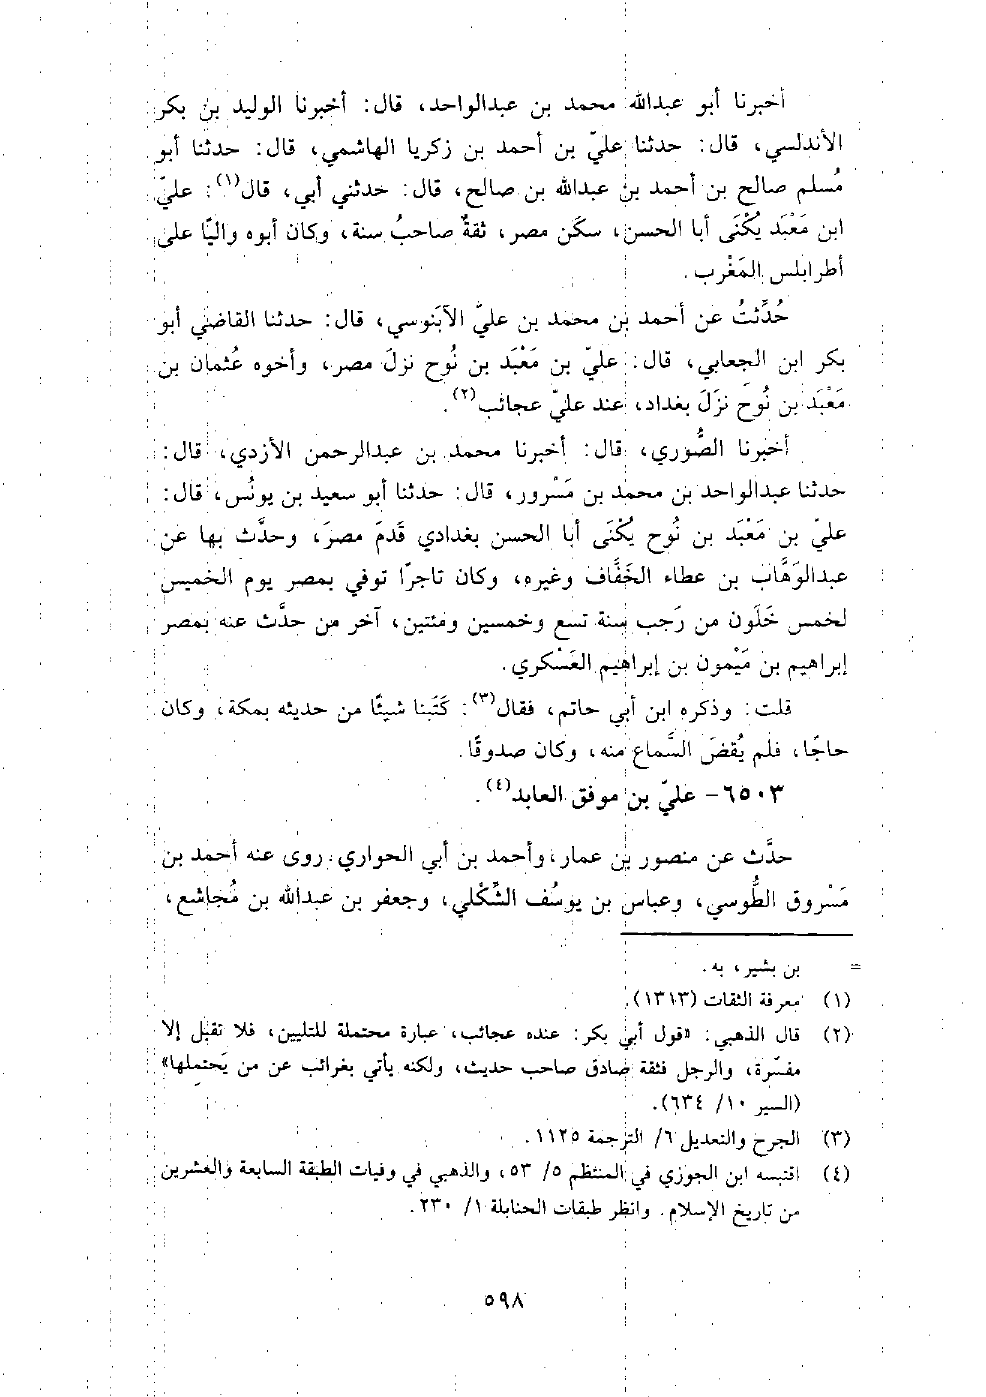 أخبرنا أبو عبدالله محمد بن عبدالواحد، قال: أخبرنا الوليد بن بكر
الأندلسي، قال: حدثنا عليّ بن أحمد بن زكريا الهاشمي، قال: حدثنا أبو
مُسلم صالح بن أحمد بن عبدالله بن صالح، قال: حدثني أبي، قال(١): عليّ
ابن مَعْبَد يُكْنَى أبا الحسن، سكَن مصر، ثقةٌ صاحبُ سنة، وكان أبوه واليًا على
أطرابلس المَغْرب.
حُدِّثتُ عن أحمد بن محمد بن عليّ الآبَنوسي، قال: حدثنا القاضي أبو
بكر ابن الجعابي، قال: عليّ بن مَعْبَد بن نُوح نزلَ مصر، وأخوه عُثمان بن
مَعْبَد بن نُوح نزَلَ بغداد، عند عليّ عجائب(٢).
أخبرنا الصُّوري، قال: أخبرنا محمد بن عبدالرحمن الأزدي، قال:
حدثنا عبدالواحد بن محمد بن مَسْرور، قال: حدثنا أبو سعيد بن يونُس، قال:
عليّ بن مَعْبَد بن نُوح يُكْنَى أبا الحسن بغدادي قَدمَ مصرَ، وحدَّث بها عن
عبدالوَهَّاب بن عطاء الخَفَّاف وغيره، وكان تاجرًا توفي بمصر يوم الخميس
لخمس خَلَون من رَجب سنة تسع وخمسين ومئتين، آخر من حدَّث عنه بمصر
إبراهيم بن مَيْمون بن إبراهيم العَسْكري.
قلت: وذكره ابن أبي حاتم، فقال(٣): كَتَبنا شيئًا من حديثه بمكة، وكان
حاجًا، فلم يُقضَ السَّماع منه، وكان صدوقًا.
٦٥٠٣- عليّ بن موفق العابد(٤).
حدَّث عن منصور بن عمار، وأحمد بن أبي الحواري. روى عنه أحمد بن
مَسْروق الطُّوسي، وعباس بن يوسُف الشِّكْلي، وجعفر بن عبدالله بن مُجاشع،
= بن بشير، به.
(١) معرفة الثقات (١٣١٣).
(٢) قال الذهبي: «قول أبي بكر: عنده عجائب، عبارة محتملة للتليين، فلا تقبل إلا
مفسّرة، والرجل فثقة صادق صاحب حديث، ولكنه يأتي بغرائب عن من يَحتملها»
(السير ١٠/ ٦٣٤).
(٣) الجرح والتعديل ٦/ الترجمة ١١٢٥.
(٤) اقتبسه ابن الجوزي في المنتظم ٥/ ٥٣، والذهبي في وفيات الطبقة السابعة والعشرين
من تاريخ الإسلام. وانظر طبقات الحنابلة ١/ ٢٣٠.
٥٩٨